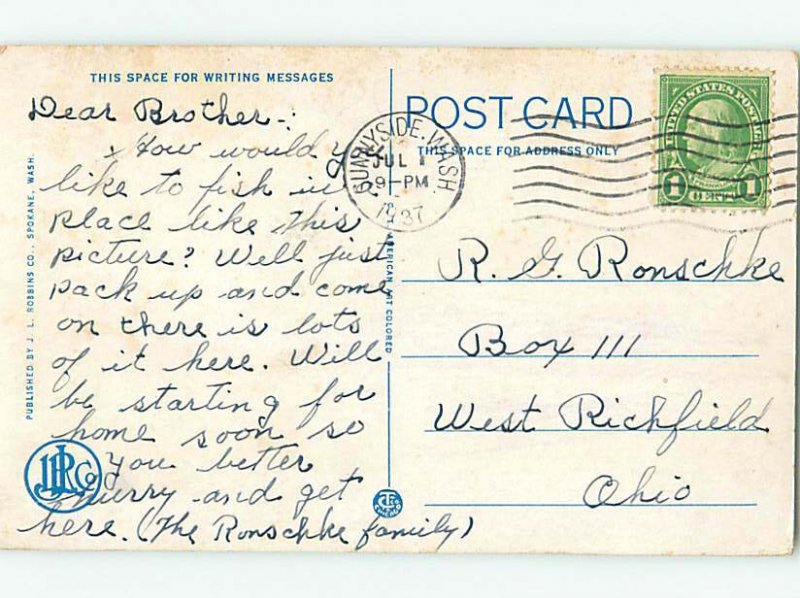 THIS SPACE FOR WRITING MESSAGES
Dear Brother-:
How would you
like to fish in a
place like this
picture? Well just
pack up and come
on there is lots
of it here. Will
be starting for
home soon so
you better
hurry and get
here. (The Ronschke family)
PUBLISHED BY J. L. ROBBINS CO., SPOKANE, WASH.
JLR Co
AMERICAN ART COLORED
SUNNYSIDE, WASH.
JUL 1
9-PM
1937
POST CARD
THIS SPACE FOR ADDRESS ONLY
UNITED STATES POSTAGE
1 1
R. G. Ronschke
Box 111
West Richfield
Ohio